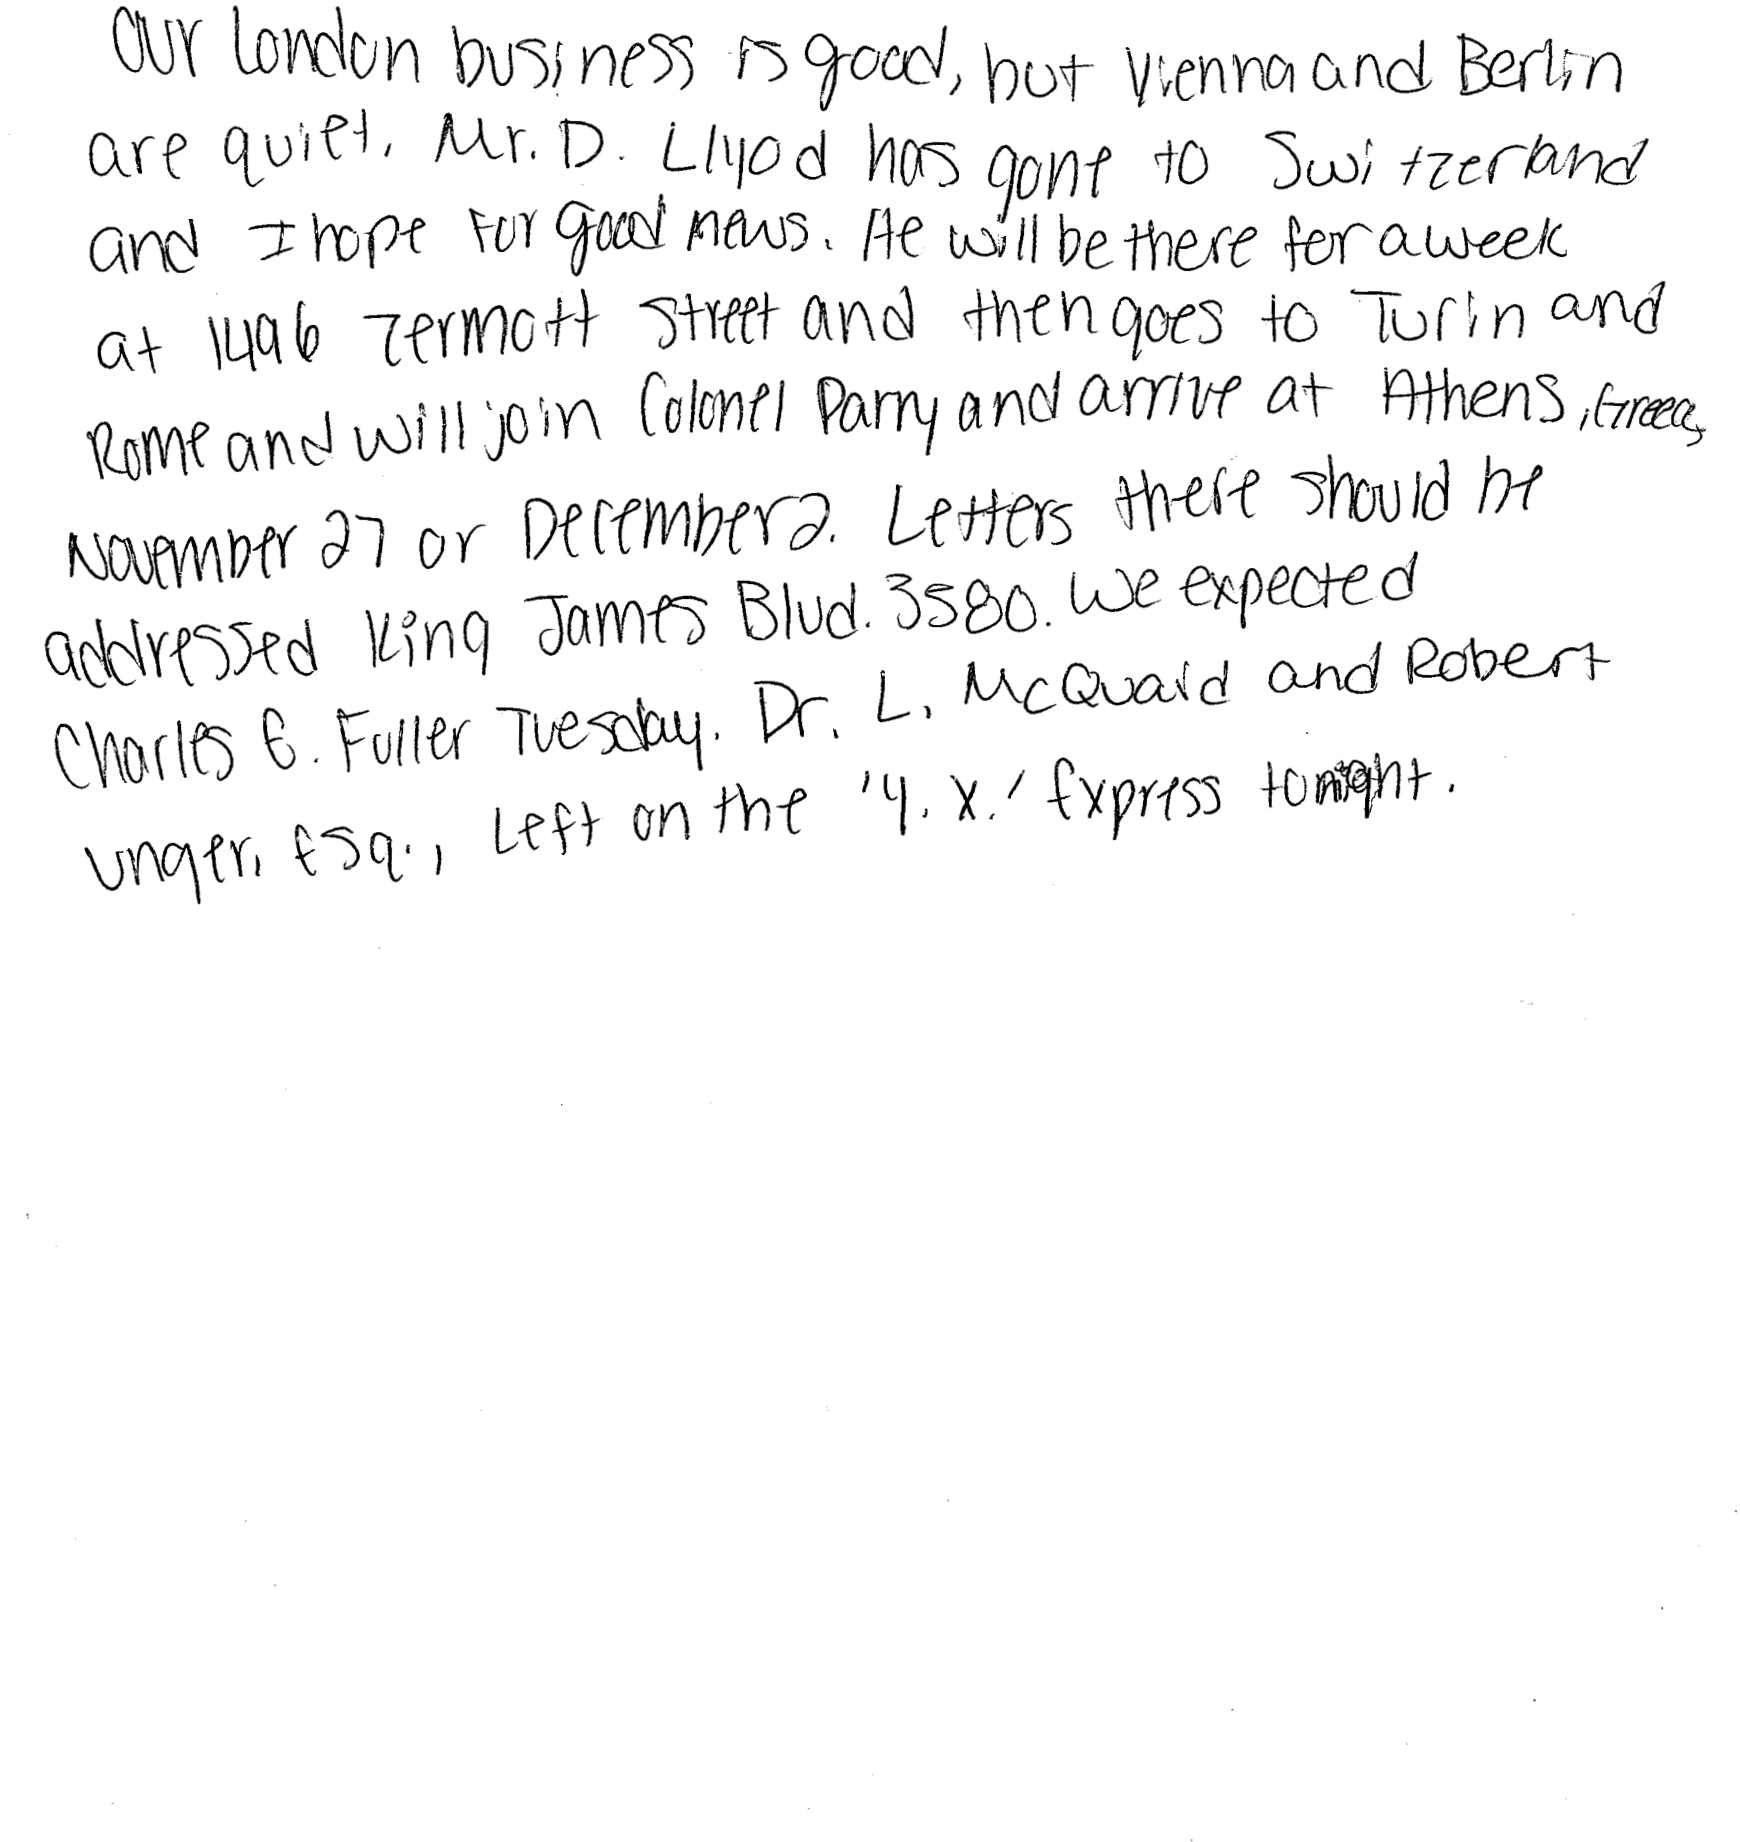 Our London business is good, but Vienna and Berlin
are quiet. Mr. D. Llyod has gone to Switzerland
and I hope for good news. He will be there for a week
at 1496 Zermott Street and then goes to Turin and
Rome and will join Colonel Parry and arrive at Athens, Greece,
November 27 or December 2. Letters there should be
addressed King James Blvd. 3580. We expected
Charles E. Fuller Tuesday. Dr. L. McQuaid and Robert
Unger, Esq., Left on the 'Y. X.' Express tonight.